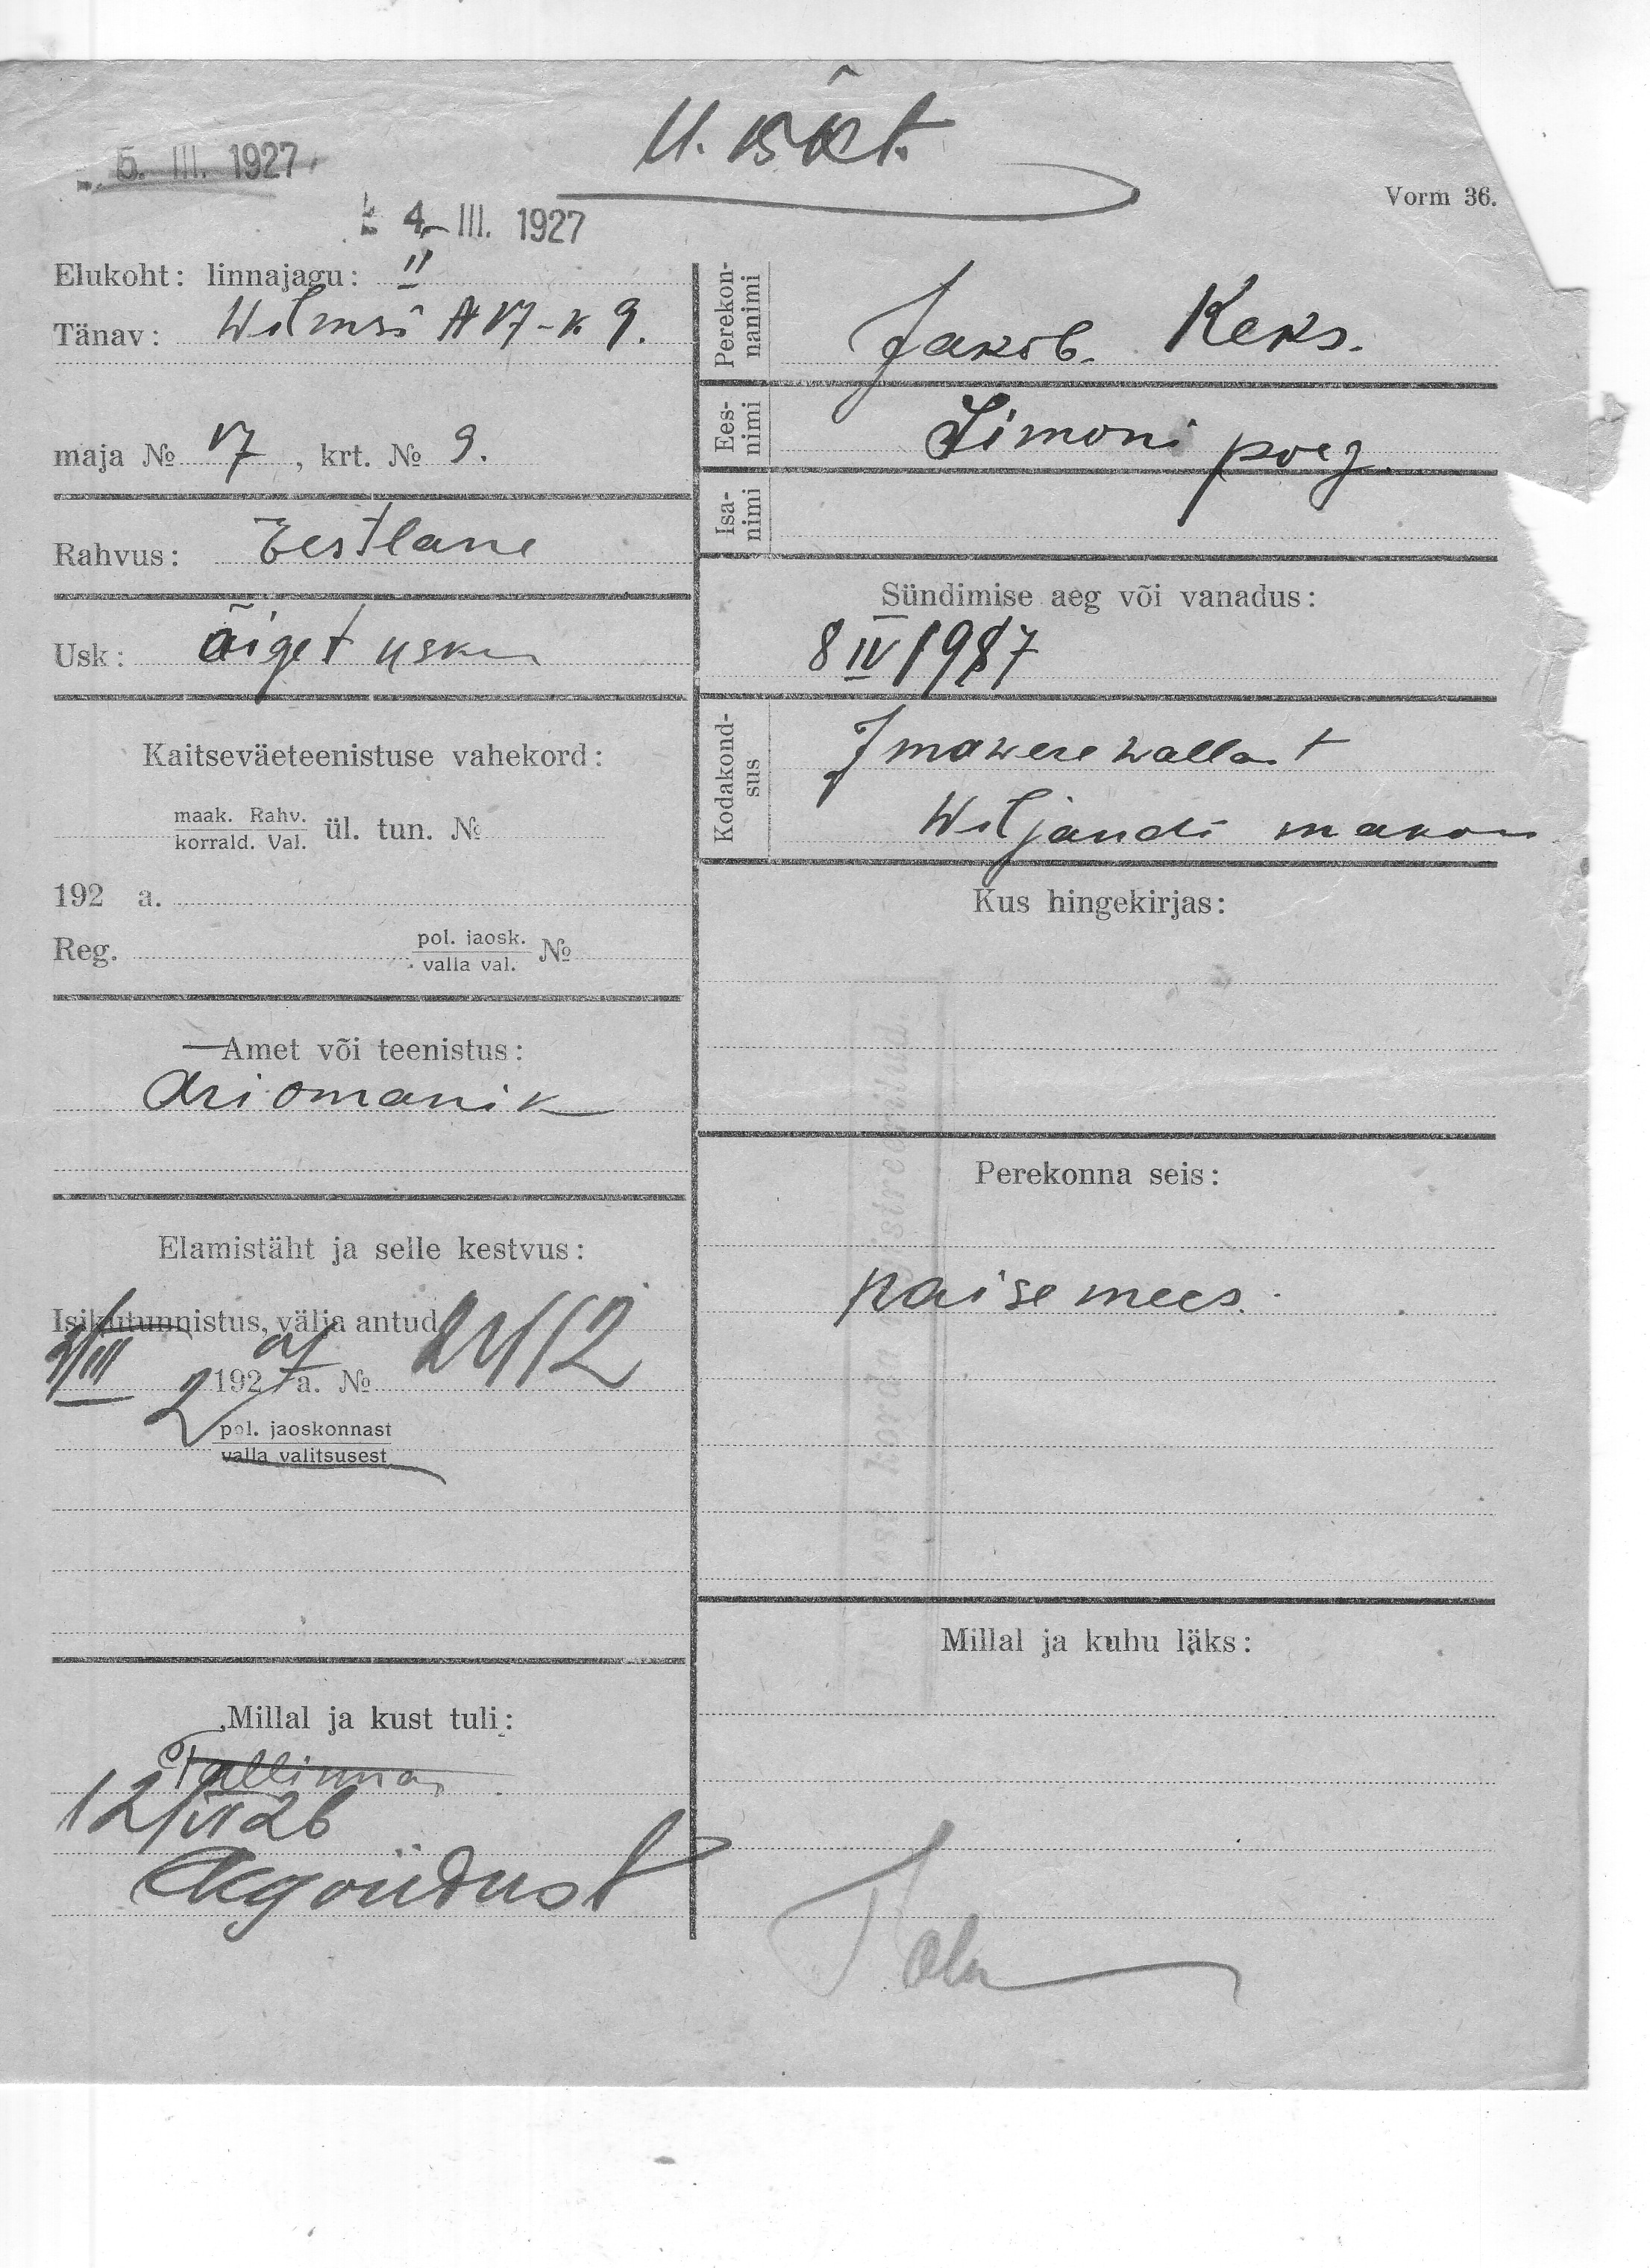 5. III. 1927
4. III. 1927
Vorm 36.
Elukoht: linnajagu: II
Tänav: Wilmsi № 17 - k 9.
maja № 17, krt. № 9.
Rahvus: Eestlane
Usk: õiget usku
Kaitseväeteenistuse vahekord:
maak. Rahv.
korrald. Val. ül. tun. №
192 a.
Reg. pol. jaosk.
valla val. №
Amet või teenistus:
Äriomanik
Elamistäht ja selle kestvus:
Isikutunnistus, välja antud
192 a. №
pol. jaoskonnast
valla valitsusest
Millal ja kust tuli:
Tallinna
Aegviidust
Perekon-
nanimi
Jakob. Keks.
Ees-
nimi
Simoni poeg.
Isa-
nimi
Sündimise aeg või vanadus:
8 IV 1987
Kodakond-
sus
Imawere wallast
Wiljandi makon
Kus hingekirjas:
Perekonna seis:
naise mees.
Millal ja kuhu läks: